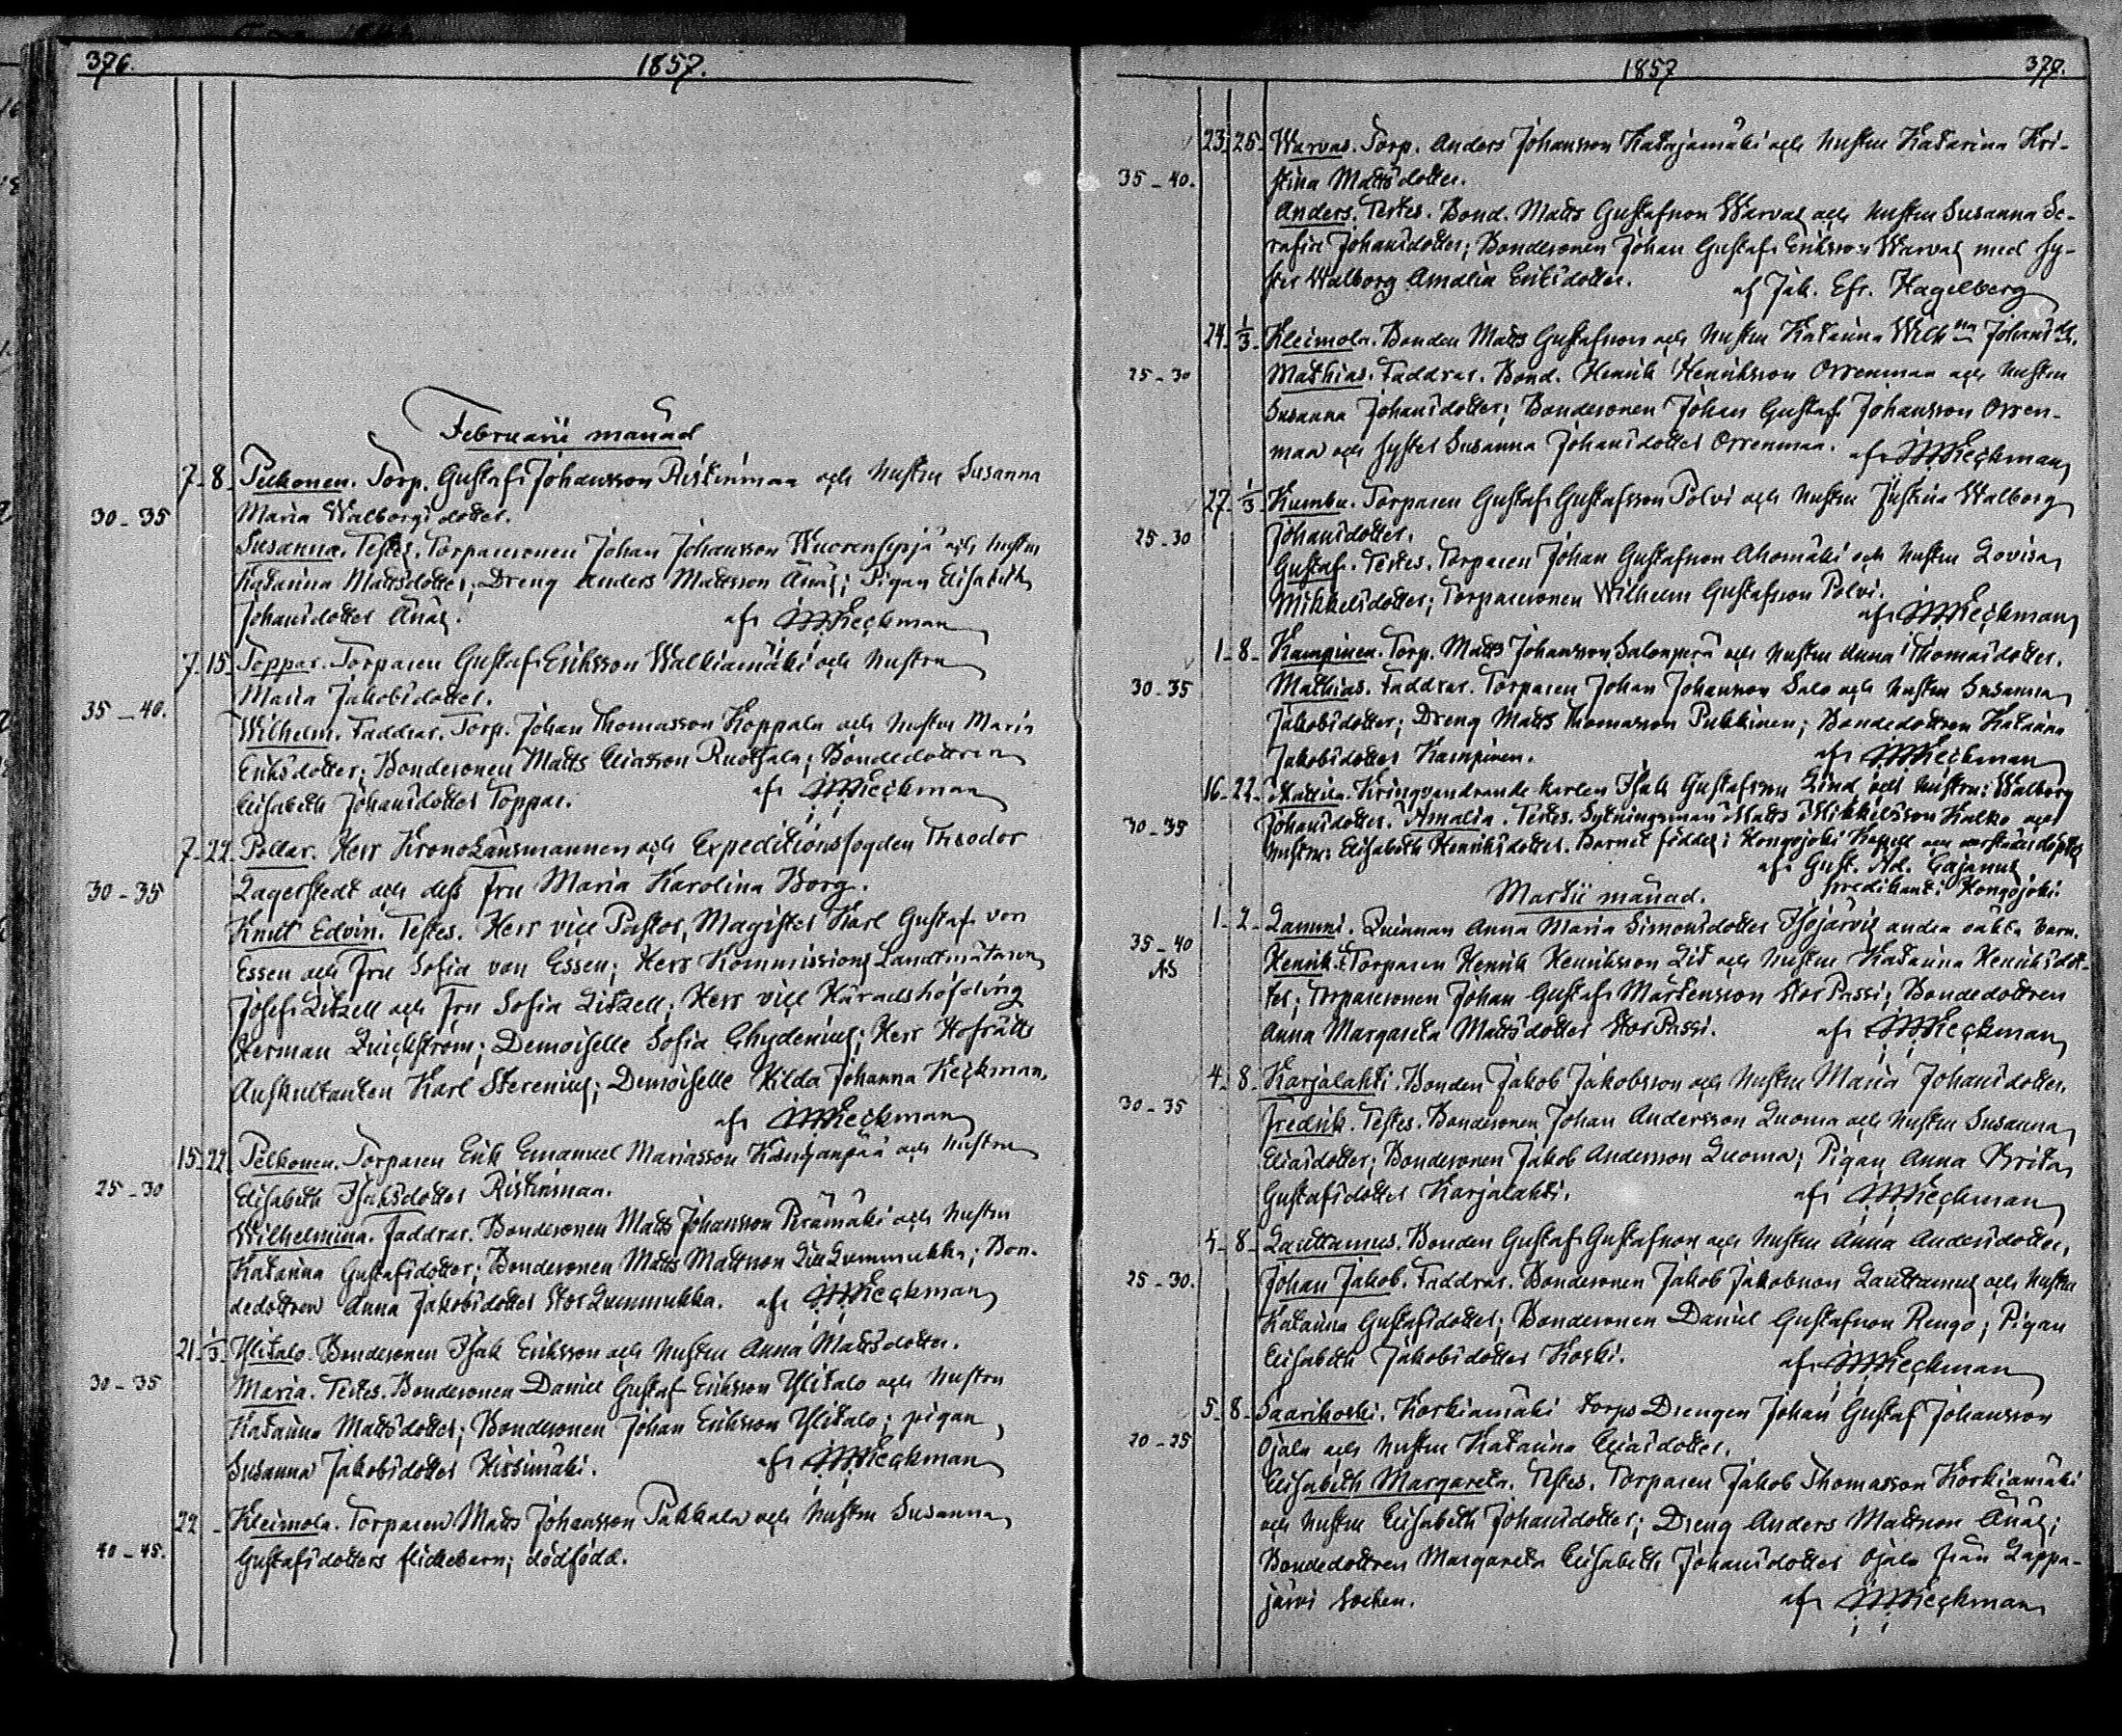 376. 1857.
Februarii månad
7-8 Pelkonen. Torp. Gustaf Johansson Ristinmaa och hustru Susanna
30-35 Maria Walborgsdotter.
Susanna. Testes. Torparesonen Johan Johansson och hustru
Katarina Mattsdotter; Dreng Anders Mattsson Änäs; Pigan Elisabeth
Johansdotter Änäs. af Keckman
7-15 Toppar. Torparen Gustaf Eriksson Walkiamäki och hustru
Maria Jakobsdotter.
35-40. Wilhelm. Faddrar. Torp. Johan Thomasson Koppala och hustru Maria
Eriksdotter; Bondesonen Matts Eliasson Ruotsala; Bondedottren
Elisabeth Johansdotter Toppar. af Keckman
7-22 Pollar. Herr KronoLänsmannen och Expeditionsfogden Theodor
30-35 Lagerstedt och dess fru Maria Karolina Borg.
Knut Edvin. Testes. Herr vice Pastor, Magister Karl Gustaf von
Essen och Fru Sofia von Essen; Herr Kommissions Landtmätaren
Josef Litzell och Fru Sofia Litzell; Herr vice Häradshöfding
Herman; Demoiselle Sofia Chydenius; Herr Hofrätts
Auskultanten Karl Sterenius; Demoiselle Hilda Johanna Keckman.
af Keckman
15-22 Pelkonen. Torparen Erik Emanuel Mariasson Kanganpää och hustru
25-30 Elisabeth Isaksdotter Ristinmaa.
Wilhelmina. Faddrar. Bondesonen Matts Johansson Perämäki och hustru
Katarina Gustafsdotter; Bondesonen Matts Mattsson LillLummukka; Bon-
dedottren Anna Jakobsdotter StorLummukka. af Keckman
21-1/3 Ylitalo. Bondesonen Isak Eriksson och hustru Anna Mattsdotter.
30-35 Maria. Testes. Bondesonen Daniel Gustaf Eriksson Ylitalo och hustru
Katarina Mattsdotter; Bondesonen Johan Eriksson Ylitalo; pigan
Susanna Jakobsdotter Hissimäki. af Keckman
22- Kleimola. Torparen Matts Johansson Pakkala och hustru Susanna
40-45. Gustafsdotters flickebarn; dödfödd.
1857 377.
23-25 Warvas. Torp. Anders Johansson Katajamäki och hustru Katarina Kri-
35-40. stina Mattsdotter.
Anders. Testes. Bond. Matts Gustafsson Warvas och hustru Susanna Se-
rafia Johansdotter; Bondesonen Johan Gustaf Eriksson Warvas med sy-
ster Walborg Amalia Eriksdotter. af Jak. Efr. Hagelberg
24-1/3 Kleimola. Bonden Matts Gustafsson och hustru Katarina Wilhna Johansdr.
25-30 Mathias. Faddrar. Bond. Henrik Henriksson Orrenmaa och hustru
Susanna Johansdotter; Bondesonen Johan Gustaf Johansson Orren-
maa och syster Susanna Johansdotter Orrenmaa. af Keckman
27-1/3 Kumbu. Torparen Gustaf Gustafsson Polvi och hustru Justina Walborg
25-30 Johansdotter.
Gustaf. Testes. Torparen Johan Gustafsson Ahomäki och hustru Lovisa
Mikkelsdotter; Torparesonen Wilhelm Gustafsson Polvi.
af Keckman
1-8 Kampinen. Torp. Matts Johansson Salonperä och hustru Anna Thomasdotter.
30-35 Mathias. Faddrar. Torparen Johan Johansson Salo och hustru Susanna
Jakobsdotter; Dreng Matts Thomasson Pukkinen; Bondedottren Katarina
Jakobsdotter Kampinen. af Keckman
16-22 Mattila. Kringvandrande karlen Isak Gustafsson Lind och hustru: Walborg
30-35 Johansdotter. Amalia. Testes. Sytningsman Matts Mikkelsson Kalko och
hustru: Elisabeth Henriksdotter. Barnet föddes i Kongojoki Kapell
af Gust. Ad. Cajanus
predikant i Kongojoki.
Martii månad.
1-2 Lammi. Quinnan Anna Maria Simonsdotter Isojärvis andra oäkta barn.
35-40 Henrik. T. Torparen Henrik Henriksson Lit och hustru Katarina Henriksdot-
AS ter; Torparesonen Johan Gustaf Mårtensson StorPassi; Bondedottren
Anna Margareta Mattsdotter StorPassi. af Keckman
4-8 Karjalahti. Bonden Jakob Jakobsson och hustru Maria Johansdotter.
30-35 Fredrik. Testes. Bondesonen Johan Andersson Luoma och hustru Susanna
Eliasdotter; Bondesonen Jakob Andersson Luoma; Pigan Anna Brita
Gustafsdotter Karjalahti. af Keckman
4-8 Lauttamus. Bonden Gustaf Gustafsson och hustru Anna Andersdotter.
25-30. Johan Jakob. Faddrar. Bondesonen Jakob Jakobsson Lauttamus och hustru
Katarina Gustafsdotter; Bondesonen Daniel Gustafsson Rengo; Pigan
Elisabeth Jakobsdotter Koski. af Keckman
5-8 Saarikoski. Korkiamäki torps Drengen Johan Gustaf Johansson
20-25 Ojala och hustru Katarina Eliasdotter.
Elisabeth Margareta. Testes. Torparen Jakob Thomasson Korkiamäki
och hustru Elisabeth Johansdotter; Dreng Anders Mattsson Änäs;
Bondedottren Margareta Elisabeth Johansdotter Ojala från Lappa-
järvi Socken. af Keckman